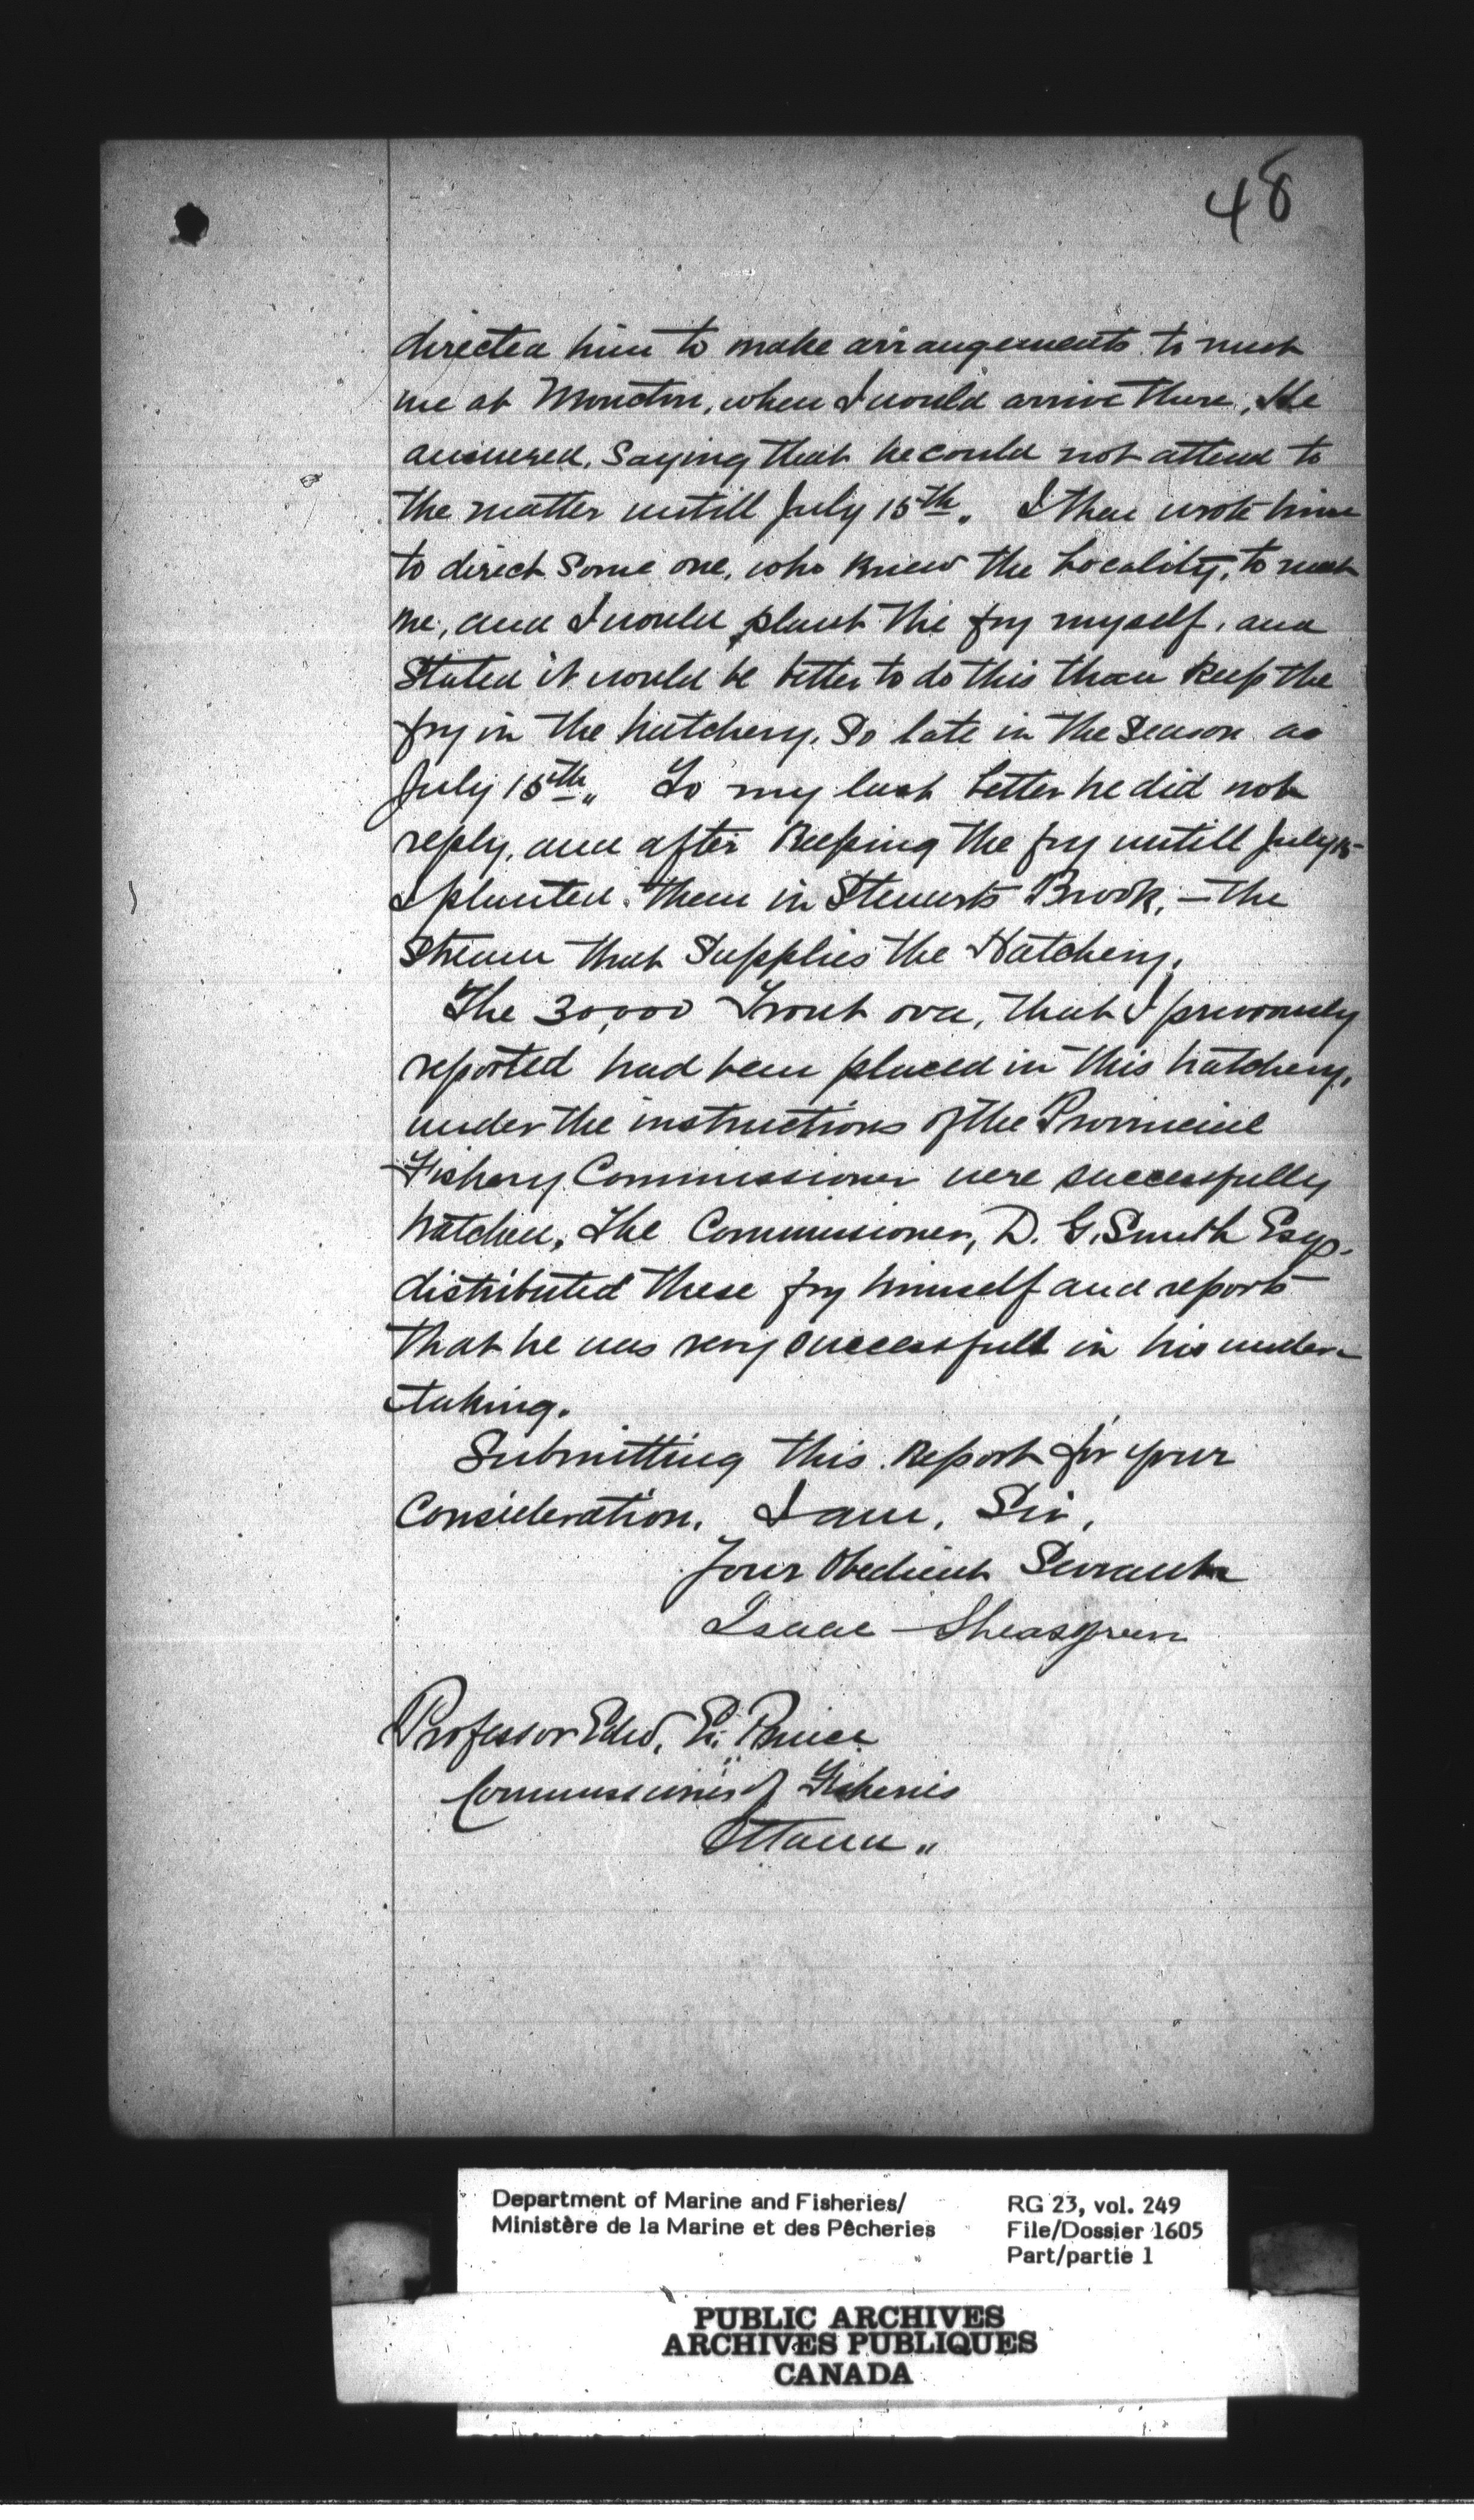 48
directed him to make arrangements to meet
me at Moncton, when I would arrive there, He
answered, saying that he could not attend to
the matter untill July 15th. I then wrote him
to direct some one, who knew the Locality, to meet
me, and I would plant the fry myself, and
stated it would be better to do this than keep the
fry in the hatchery, so late in the season as
July 15th„ To my last letter he did not
reply, and after keeping the fry untill July 15
I planted them in Stewarts Brook, — the
stream that supplies the Hatchery.
The 30,000 Trout ova, that I previously
reported had been placed in this hatchery,
under the instructions of the Provincial
Fishery Commissioner were successfully
hatched, the Commissioner, D. G. Smith Esqr.
distributed these fry himself and reports
that he was very successfull in his under-
taking.
Submitting this Report for your
Consideration, I am, Sir,
Your Obedient Servant
Isaac Sheasgreen
Professor Edw. E. Prince
Commissioner of Fisheries
Ottawa „
Department of Marine and Fisheries/
Ministère de la Marine et des Pêcheries
RG 23, vol. 249
File/Dossier 1605
Part/partie 1
PUBLIC ARCHIVES
ARCHIVES PUBLIQUES
CANADA